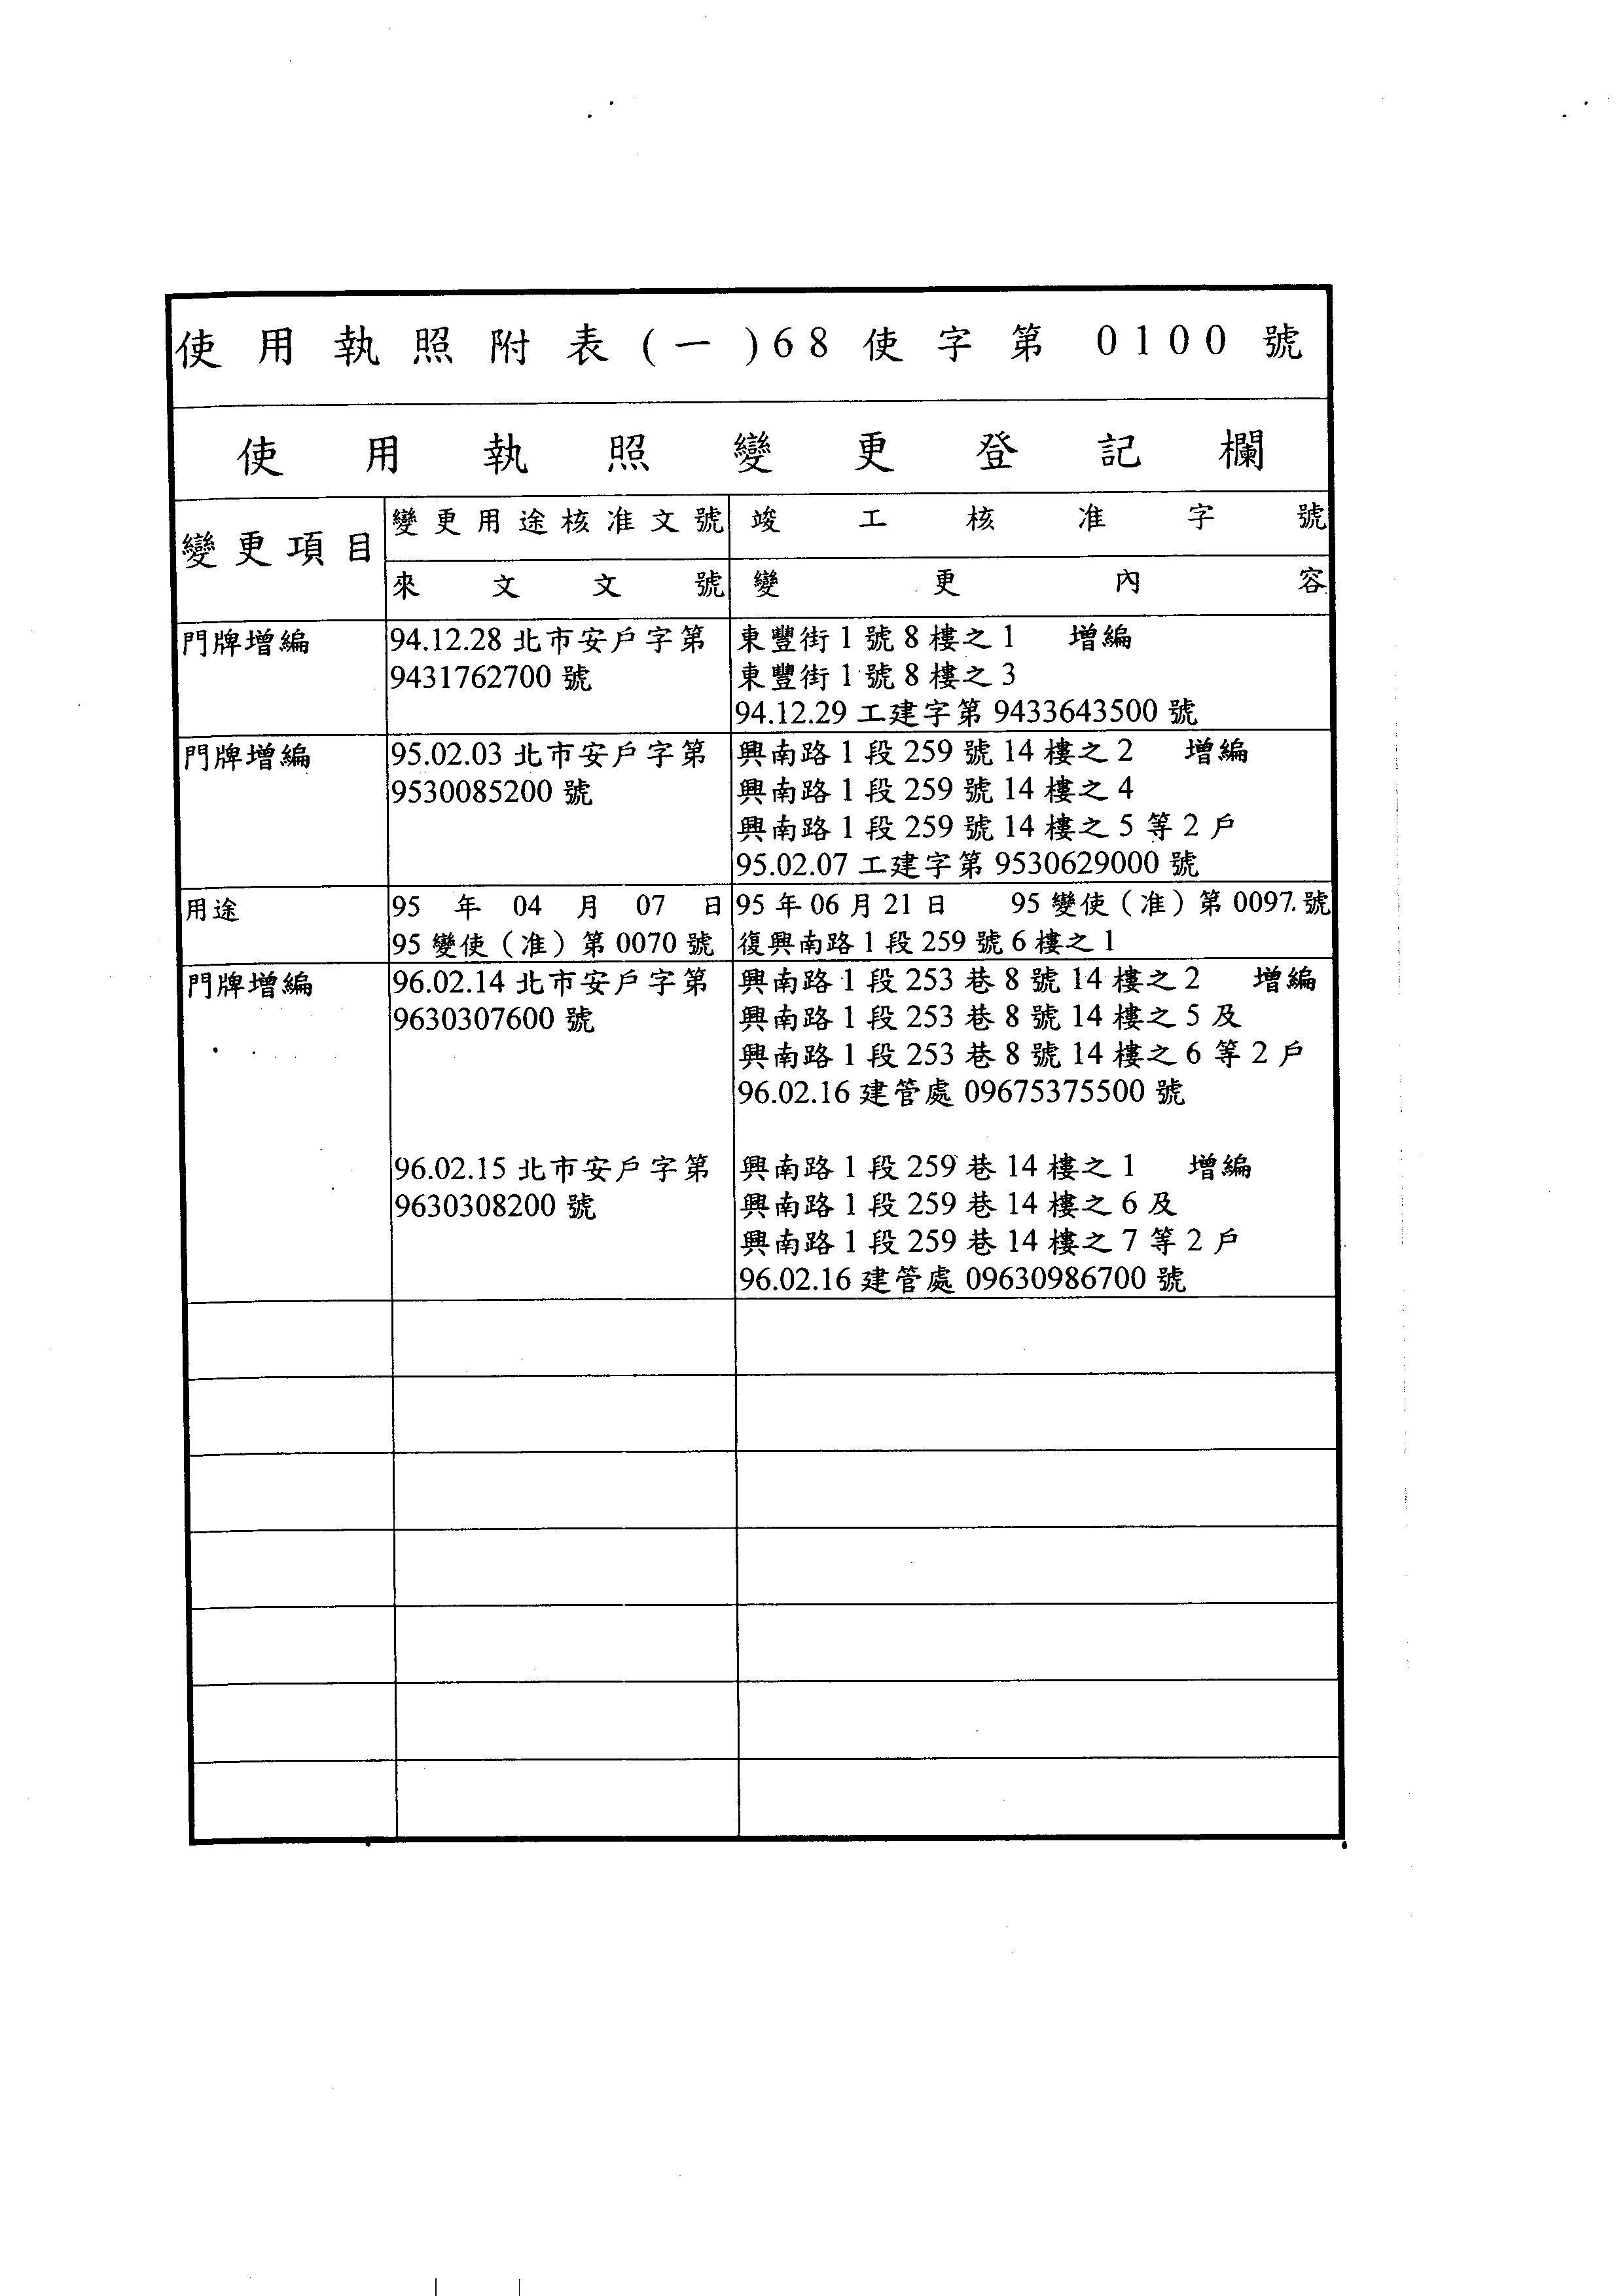 使用執照附表(一)68使字第 0100號
使用執照變更登記欄
變更項目
變更用途核准文號
竣工核准字號
來文文號
變更內容
門牌增編
94.12.28 北市安戶字第
9431762700 號
東豐街 1 號 8 樓之 1 增編
東豐街 1 號 8 樓之 3
94.12.29 工建字第 9433643500 號
門牌增編
95.02.03 北市安戶字第
9530085200 號
興南路 1 段 259 號 14 樓之 2 增編
興南路 1 段 259 號 14 樓之 4
興南路 1 段 259 號 14 樓之 5 等 2 戶
95.02.07 工建字第 9530629000 號
用途
95 年 04 月 07 日
95 變使（准）第 0070 號
95 年 06 月 21 日 95 變使（准）第 0097 號
復興南路 1 段 259 號 6 樓之 1
門牌增編
96.02.14 北市安戶字第
9630307600 號
興南路 1 段 253 巷 8 號 14 樓之 2 增編
興南路 1 段 253 巷 8 號 14 樓之 5 及
興南路 1 段 253 巷 8 號 14 樓之 6 等 2 戶
96.02.16 建管處 09675375500 號
96.02.15 北市安戶字第
9630308200 號
興南路 1 段 259 巷 14 樓之 1 增編
興南路 1 段 259 巷 14 樓之 6 及
興南路 1 段 259 巷 14 樓之 7 等 2 戶
96.02.16 建管處 09630986700 號